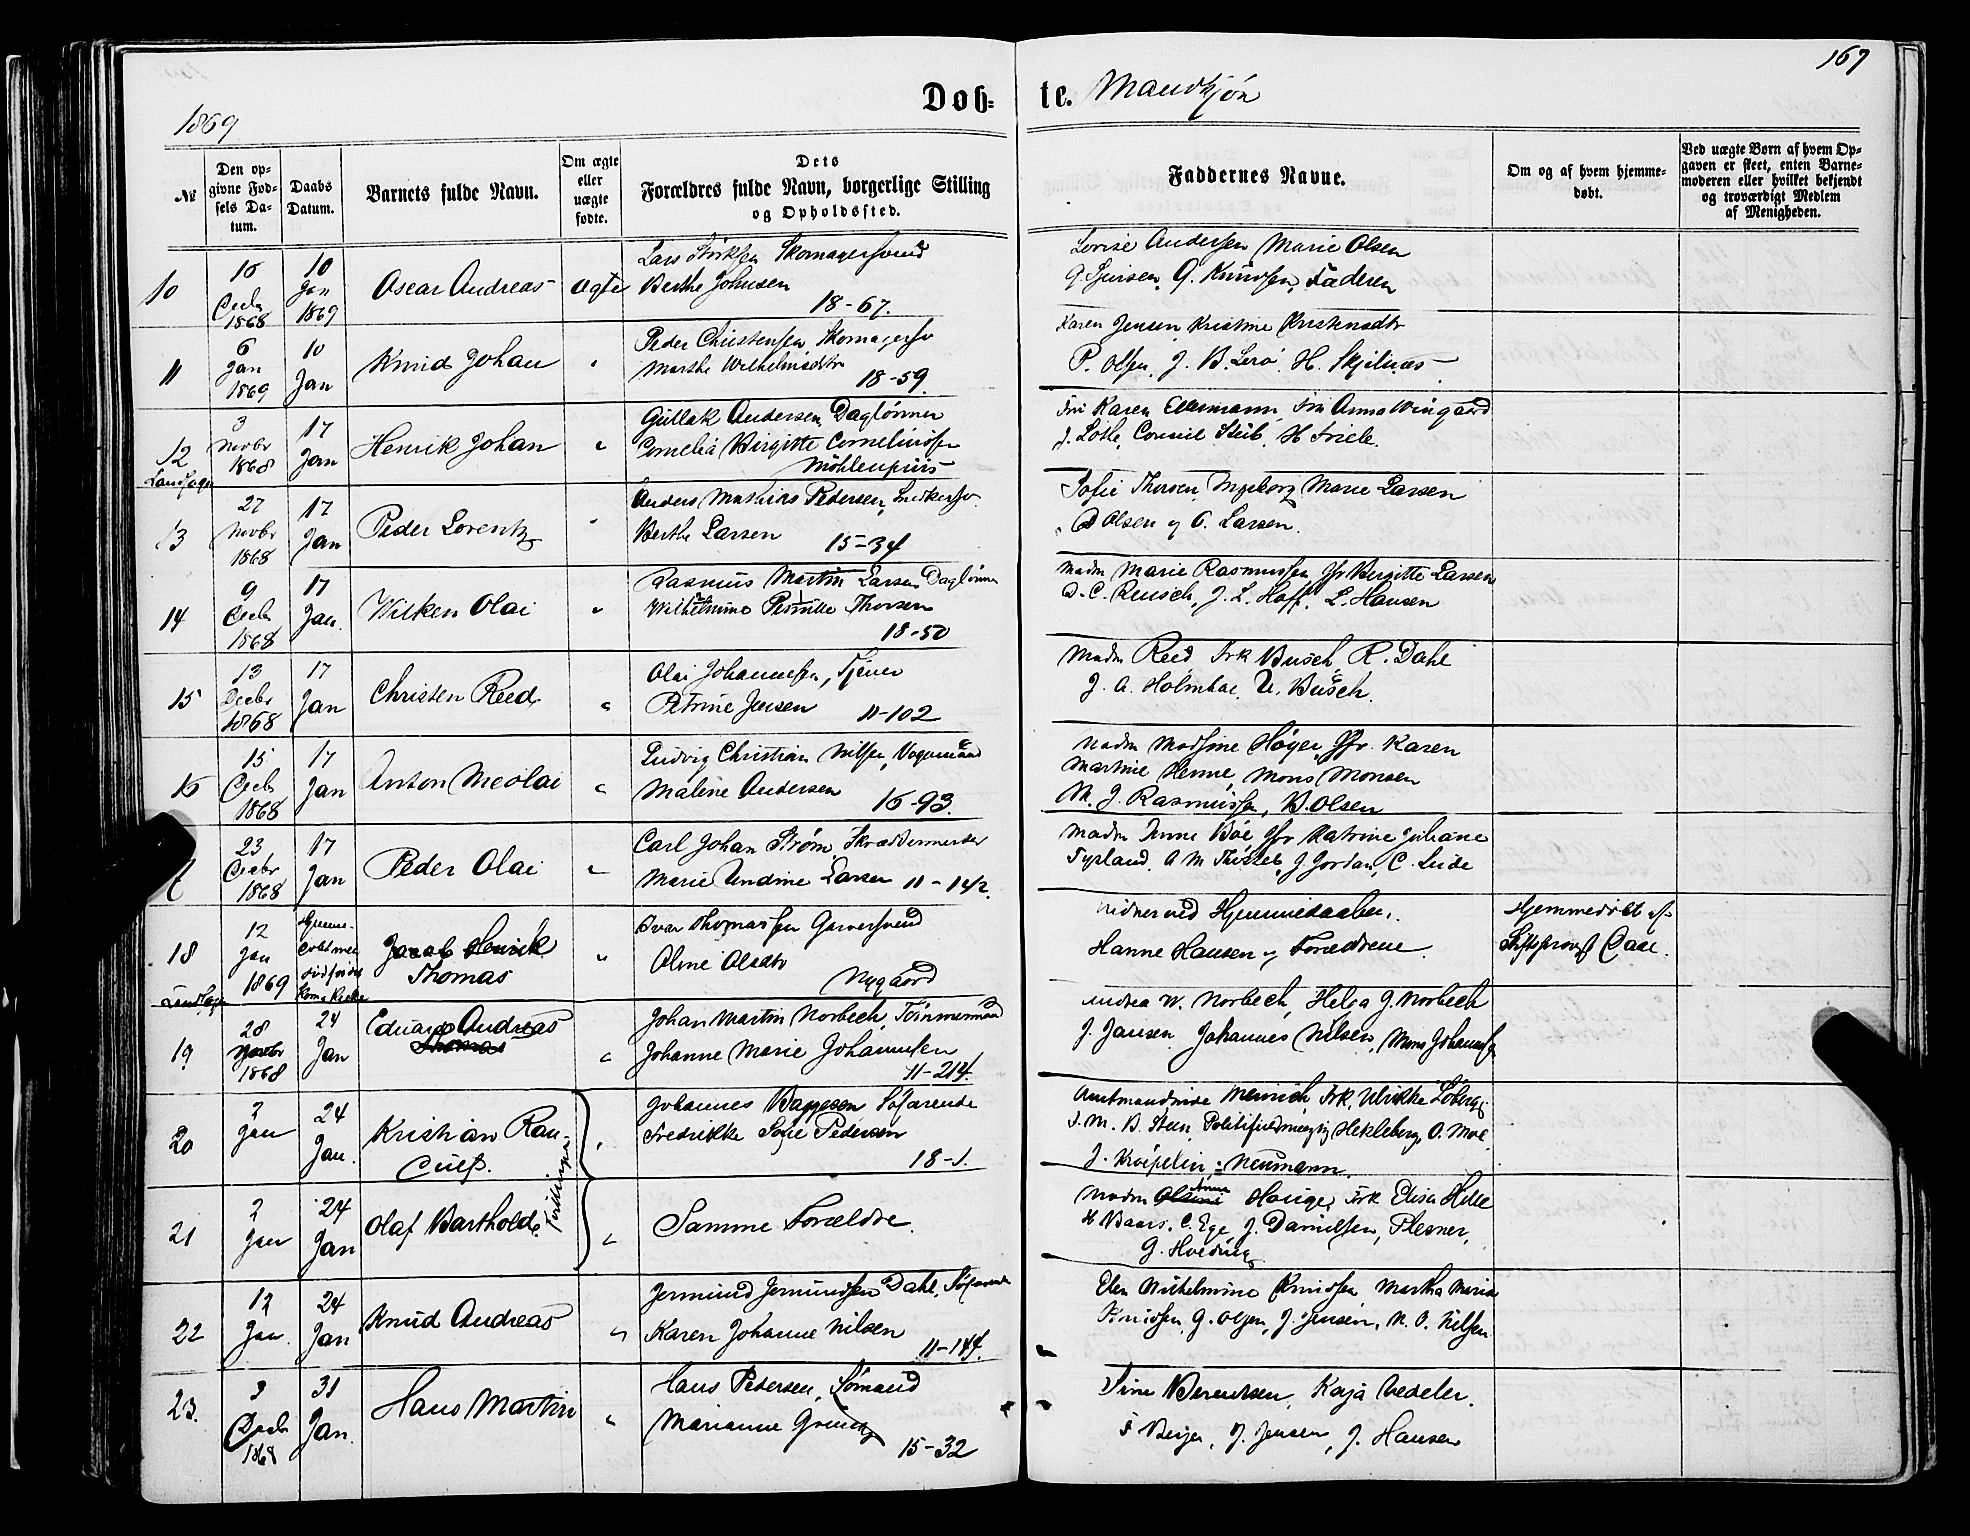 167
Døb-
te.
Mandkjøn
1869
№
Den op-
givne Fød-
sels Da-
tum.
Daabs
Datum.
Barnets fulde Navn.
Om ægte
eller
uægte
fødte.
Dets
Forældres fulde Navn, borgerlige Stilling
og Opholdssted.
Faddernes Navne.
Om og af hvem hjemme-
døbt.
Ved uægte Børn af hvem Op-
gaven er skeet, enten Barne-
moderen eller hvilket bekjendt
og troværdigt Medlem
af Menigheden.
10
Decbr
1868
10
Jan
1869
Oscar Andreas
Ægte
Lars
Berthe Johnsen
18-67.
Andersen Marie Olsen
G. Knudsen, Faderen
11
6
Jan
1869
10
Jan
Knud Johan
"
Peder Christensen Skomagersv
Marthe Wilhelmsdtr
18-59.
Karen Jensen Kristine
P. Olsen, J. B. Lerø, H. Skjelnæs
12
3
Novbr
1868
17
Jan
Henrik Johan
"
Gullak Andersen, Daglønner
Cornelia Birgitte Corneliussen
Møhlenpriis
Frk Karen Frk Anna Wingaard
J. Lothe, H Friele.
Landsogn
13
27
Novbr
1868
17
Jan
Peder Lorentz
"
Anders Mathias Pedersen, Snedkersv.
Berthe Larsen
15-34
Sofie Thorsen Ingeborg Marie Larsen
Olsen og O. Larsen.
14
9
Decbr
1868
17
Jan.
Wilken Olai
"
Rasmus Martin Larsen Daglønner
Wilhelmine Pernille Thorsen
18-50
Madm Marie Rasmussen Jfr Birgitte Larsen
D. C. Reusch, J. L. Hoff. L. Hansen
15
13
Decbr
1868
17
Jan
Christen Reed
"
Olai Johannessen, Tjener
Petrine Jensen
11-102
Madm Reed Frk Busch, R. Dahl
J. A. Holmboe, U. Busch.
16
15
Decbr
1868
17
Jan
Anton Nicolai
"
Ludvig Christian Nilsen, Vognmand
Maline Andersen
16-93.
Madm Madsine Høyer, Jfr. Karen
Martine Henne, Mons Monsen
M. J. Rasmussen, B. Olsen
23
Decbr
1868
17
Jan
Peder Olai
"
Carl Johan Strøm, Skræddermester
Marie Undine Larsen 11-142.
Madm Bøe Jfr Katrine Juliane
Tyrland. A M J Jordan, C.
18
12
Jan
1869
Hjemme-
Jacob Henrik
Thomas
"
Ivar Thomassen Garversvend
Oline Olsdtr
Nygaard
Vidner ved Hjemmedaaben.
Hanne Hansen og Forældrene.
Hjemmedøbt af
Stiftsprovst
Landsogn
19
28
Novbr
1868
24
Jan
Eduard Andreas
Thomas
"
Johan Martin Norbech, Tømmermand
Johanne Marie Johannesen
11-214.
Andrea W. Norbech, Helga J. Norbech
J. Jansen Johannes Nilsen, Mons Johannesen
20
2
Jan
24
Jan.
Kristian Ran-
"
Johannes Baggesen Søfarende
Fredrikke Sofie Pedersen
18-1.
Amtmandinde Frk, Ulrikke
J. M. B. Steen, Politifuldmægtig Hekleberg, O. Moe
J. Neumann.
Tvillinger
21
2
Jan
24
Jan
Olaf Barthold.
"
Samme Forældre.
Madm Anna Hauge, Frk Elisa
H Baars. C. Ege, J. Danielsen, Plesner,
G. Hveding
22
12
Jan.
24
Jan
Knud Andreas
"
Jermund Jermundsen Dahl, Søfarende
Karen Johanne Nilsen
11-144.
Elen Wilhelmine Knudsen Martha Marie
Knudsen, G. Olsen, J Jensen, N. O. Nilsen
23.
3
Decbr
1868
31
Jan.
Hans Martin
"
Hans Pedersen, Sømand
Marianne
15-32
Berentsen, Kaja Vedeler.
Beyer, J. Jensen, J. Hansen